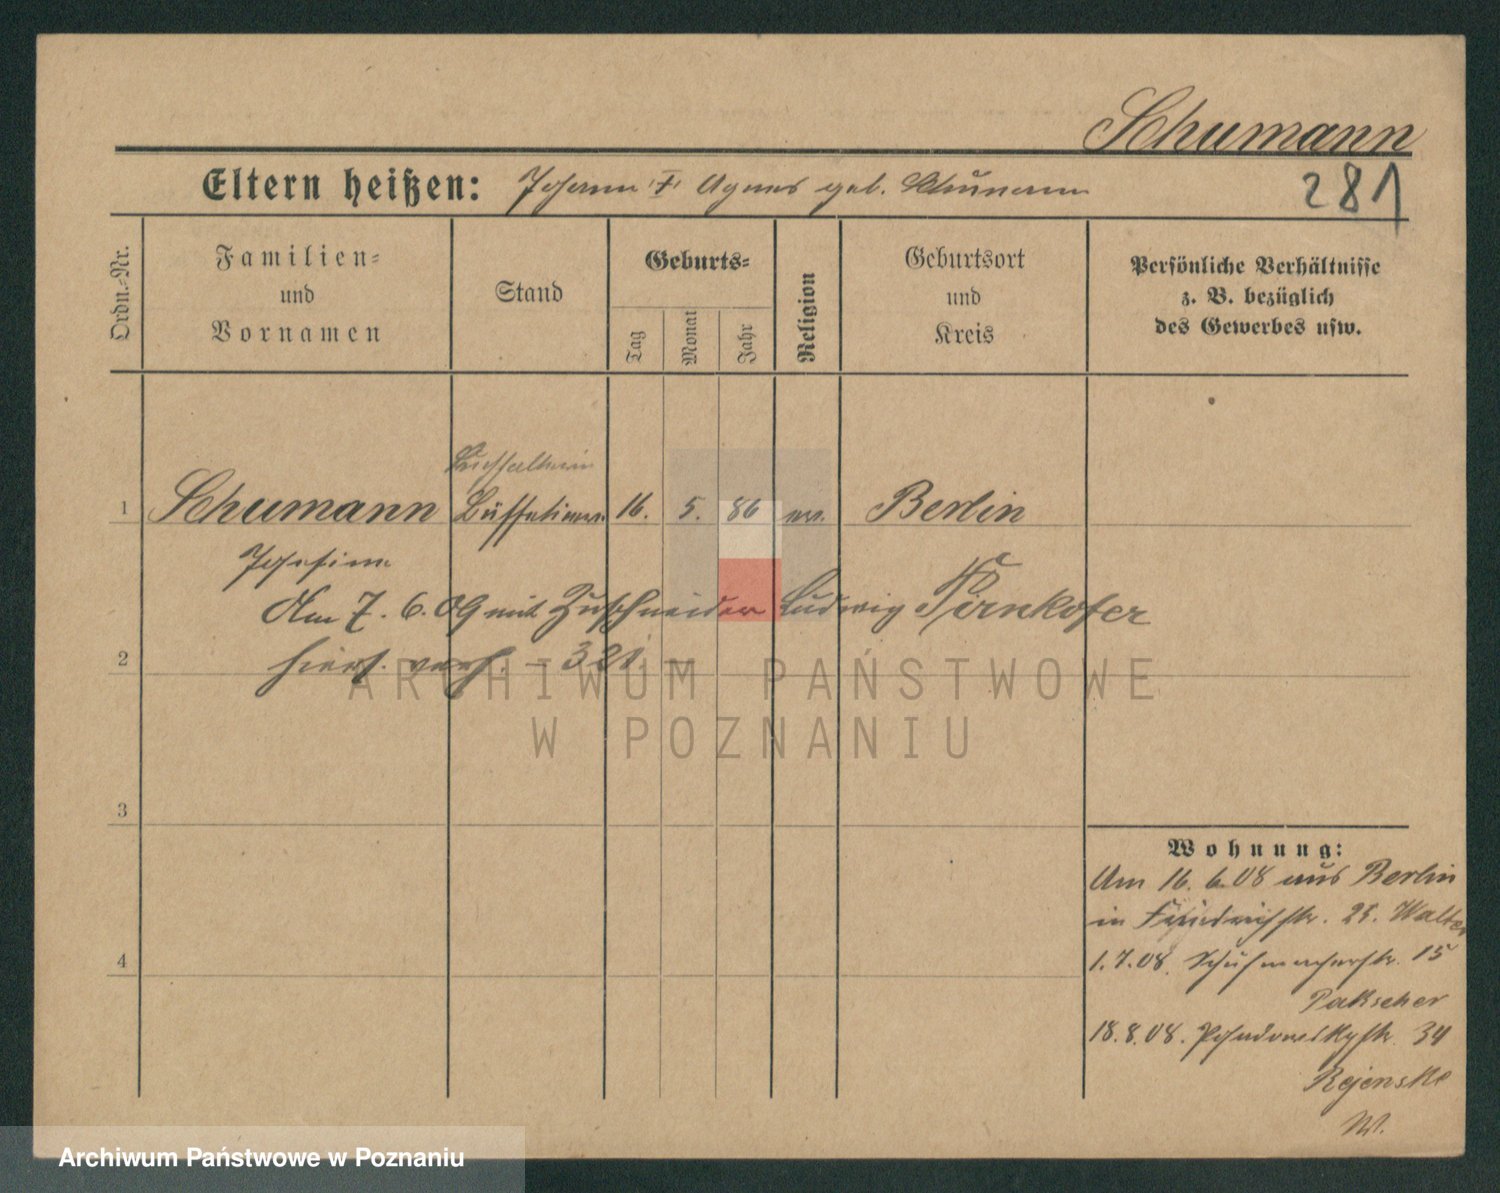 Schumann
Eltern heißen: Johann Agnes geb. Schumann
281
Ordn.-Nr.
Familien=
und
Vornamen
Stand
Geburts=
Tag
Monat
Jahr
Religion
Geburtsort
und
Kreis
Persönliche Verhältnisse
z. B. bezüglich
des Gewerbes usw.
Buchhalterin
1 Schumann 16. 5. 86 ev. Berlin
Josefine
Am 7. 6. 09 mit Zuschneider Ludwig Pirnkofer
2
hiers. verh. - 321
ARCHIWUM PAŃSTWOWE
W POZNANIU
3
4
Wohnung:
Am 16. 6. 08 aus Berlin
in Friedrichstr. 25. Walter
1. 7. 08. Schuhmacherstr. 15
Pakscher
18. 8. 08. 34
Rejenske
W.
Archiwum Państwowe w Poznaniu